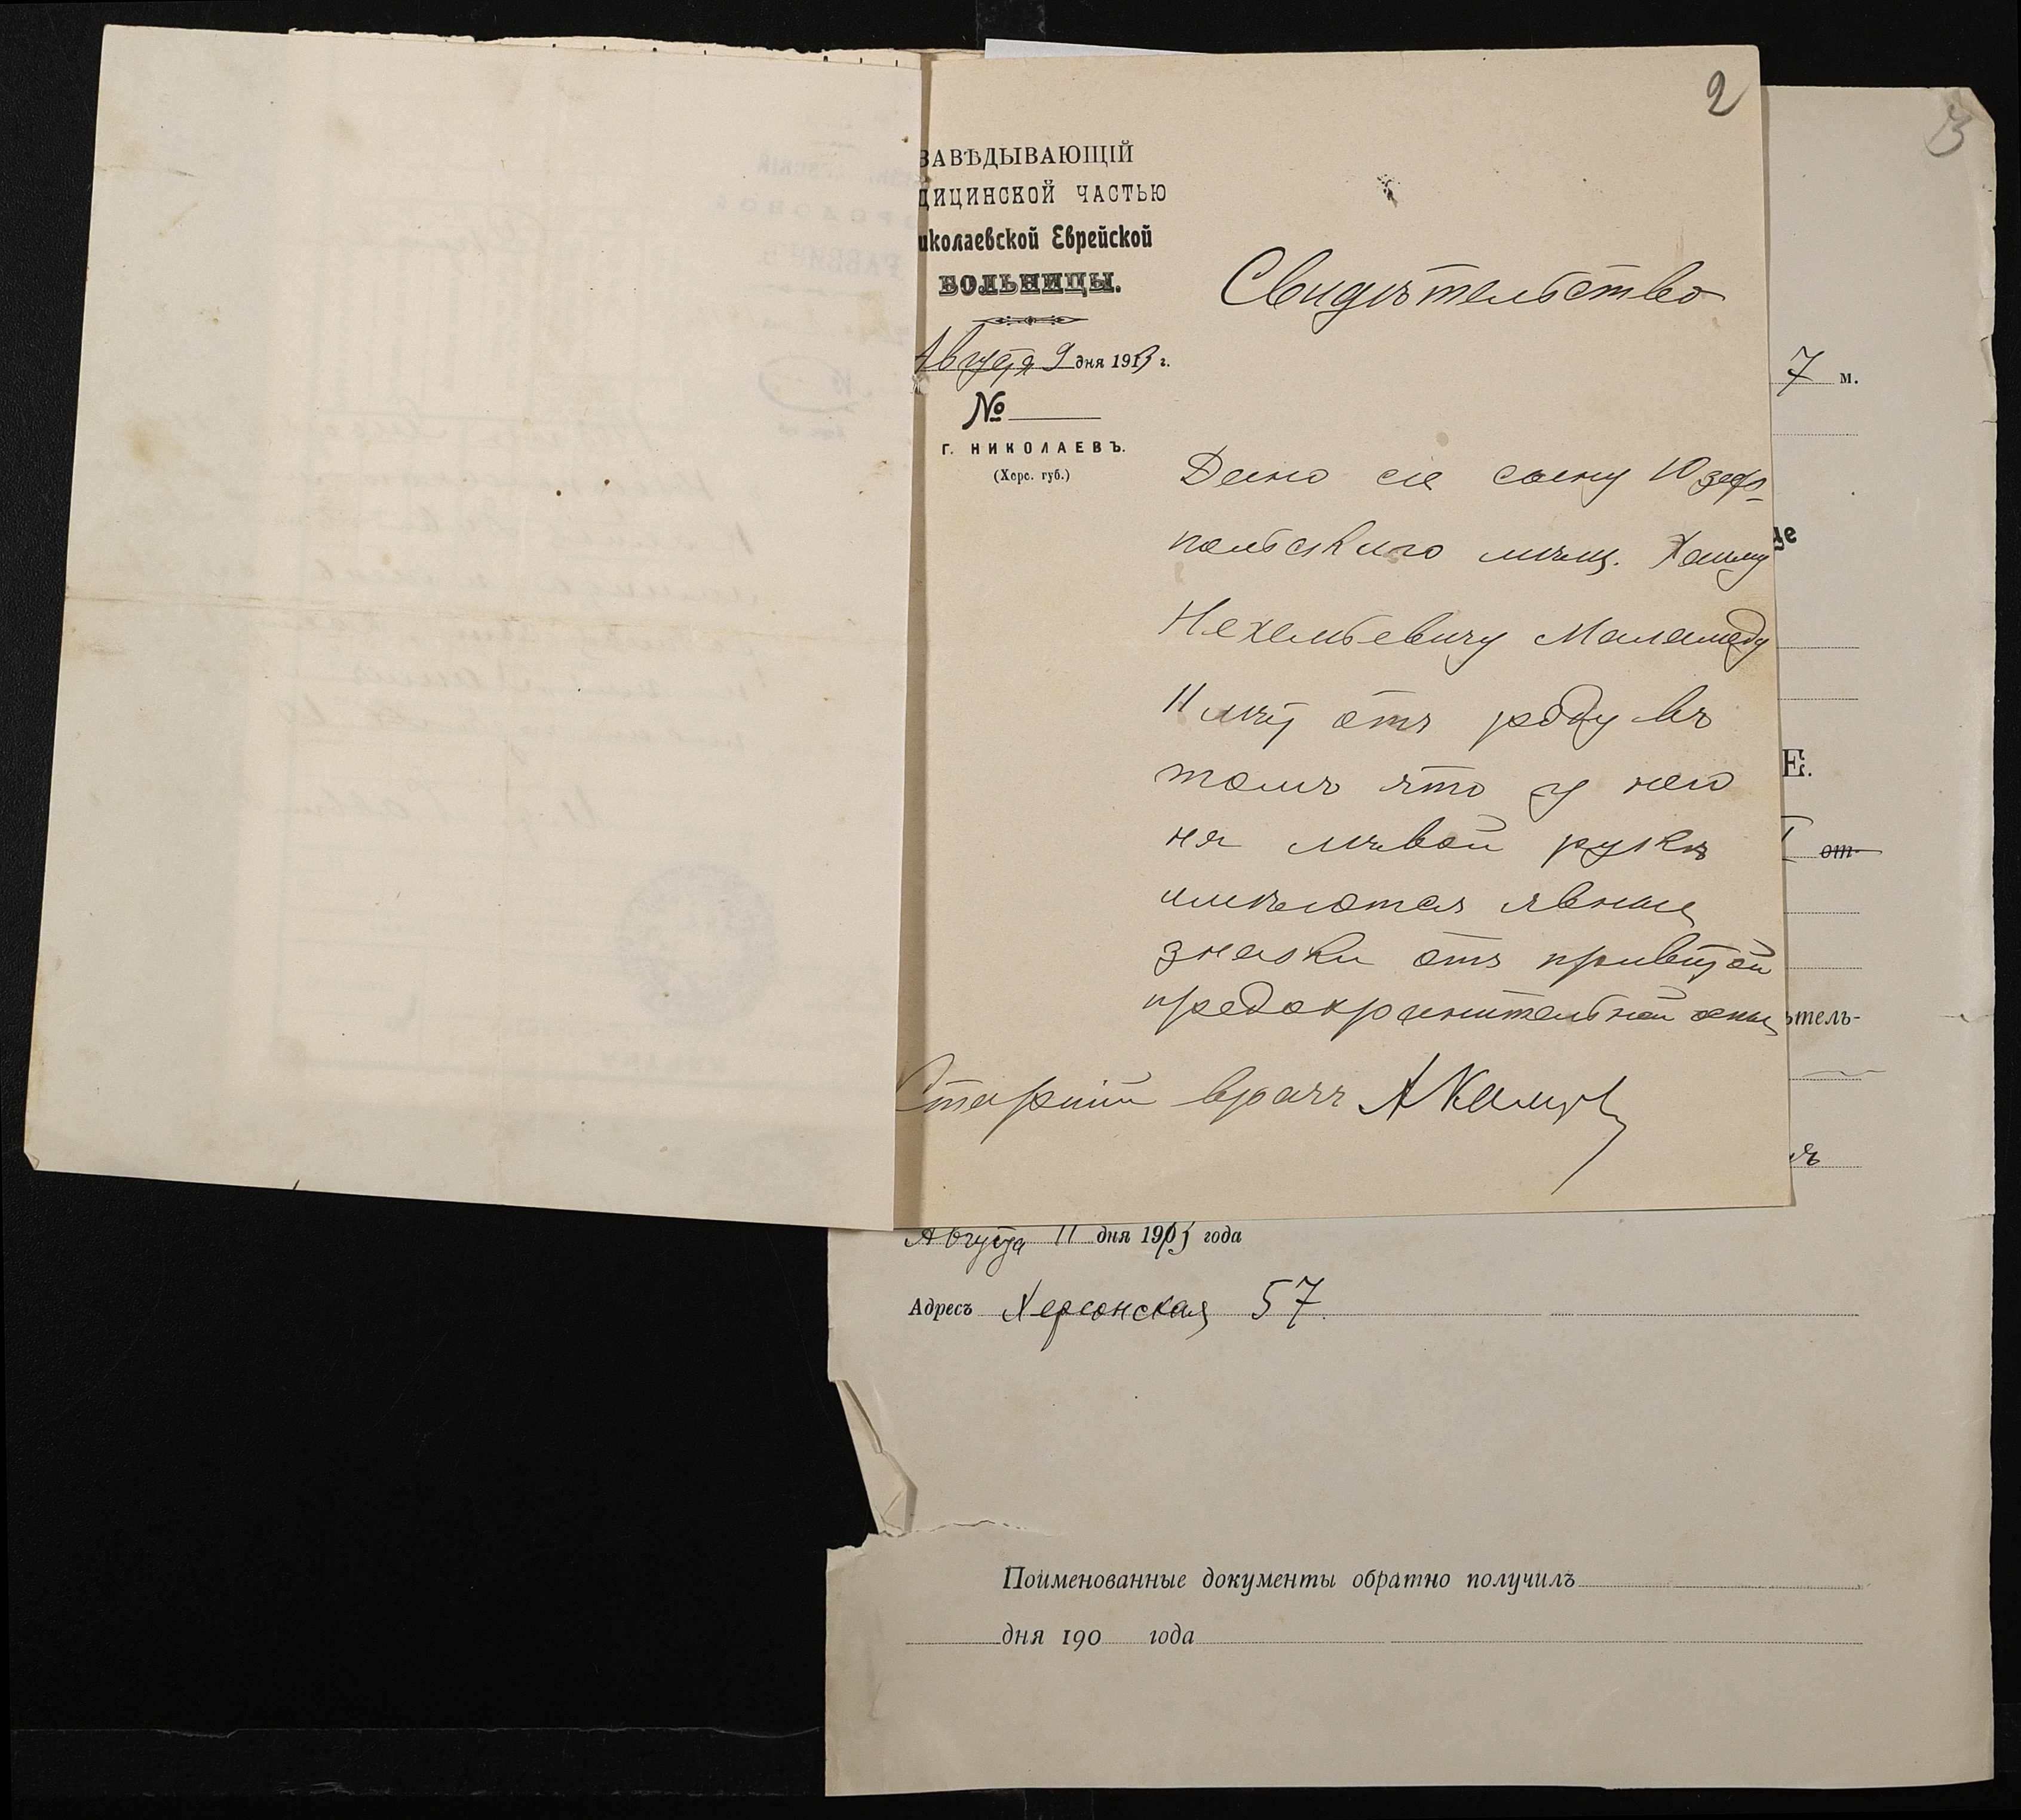 2
ЗАВѢДЫВАЮЩІЙ
ДИЦИНСКОЙ ЧАСТЬЮ
иколаевской Еврейской
БОЛЬНИЦЫ.
Августа 9 дня 1913 г.
№
Г. НИКОЛАЕВЪ.
(Херс. губ.)
Свидѣтельство
Дано сіе сыну Юзефо-
польскаго мѣщ. Хаиму
Нехемьевичу Маламеду
11 лѣт отъ роду въ
томъ что у него
на лѣвой рукѣ
имѣются явные
знаки отъ привитой
предохранительной оспы
Старшій врачъ
3
7 м.
де
Е.
от-
ѣтель-
Августа 11 дня 1913 года
Адресъ Херсонская 57.
Поименованные документы обратно получилъ
дня 190 года